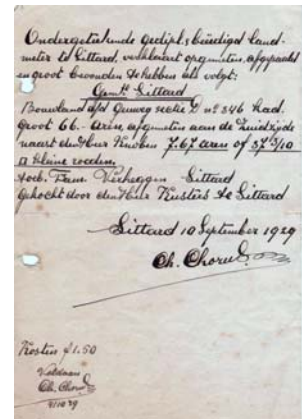 Ondergetekende gedipl. beëedigd land-
meter te Sittard, verklaart opgemeten, afgepaald
en groot bevonden te hebben als volgt:
Gemte Sittard
Bouwland a/d Gunweg sectie D no 346 kad.
groot 66.- aren, afgemeten aan de Zuidzijde
naast den Heer Knoben 7.67 aren of 37 3/10
□ kleine roeden.
toeb. Fam Verheggen Sittard
gekocht door den Heer Kusters te Sittard
Sittard 10 September 1929
Ch. Chorus
Kosten f 1.50
Voldaan
Ch. Chorus
9/10 29